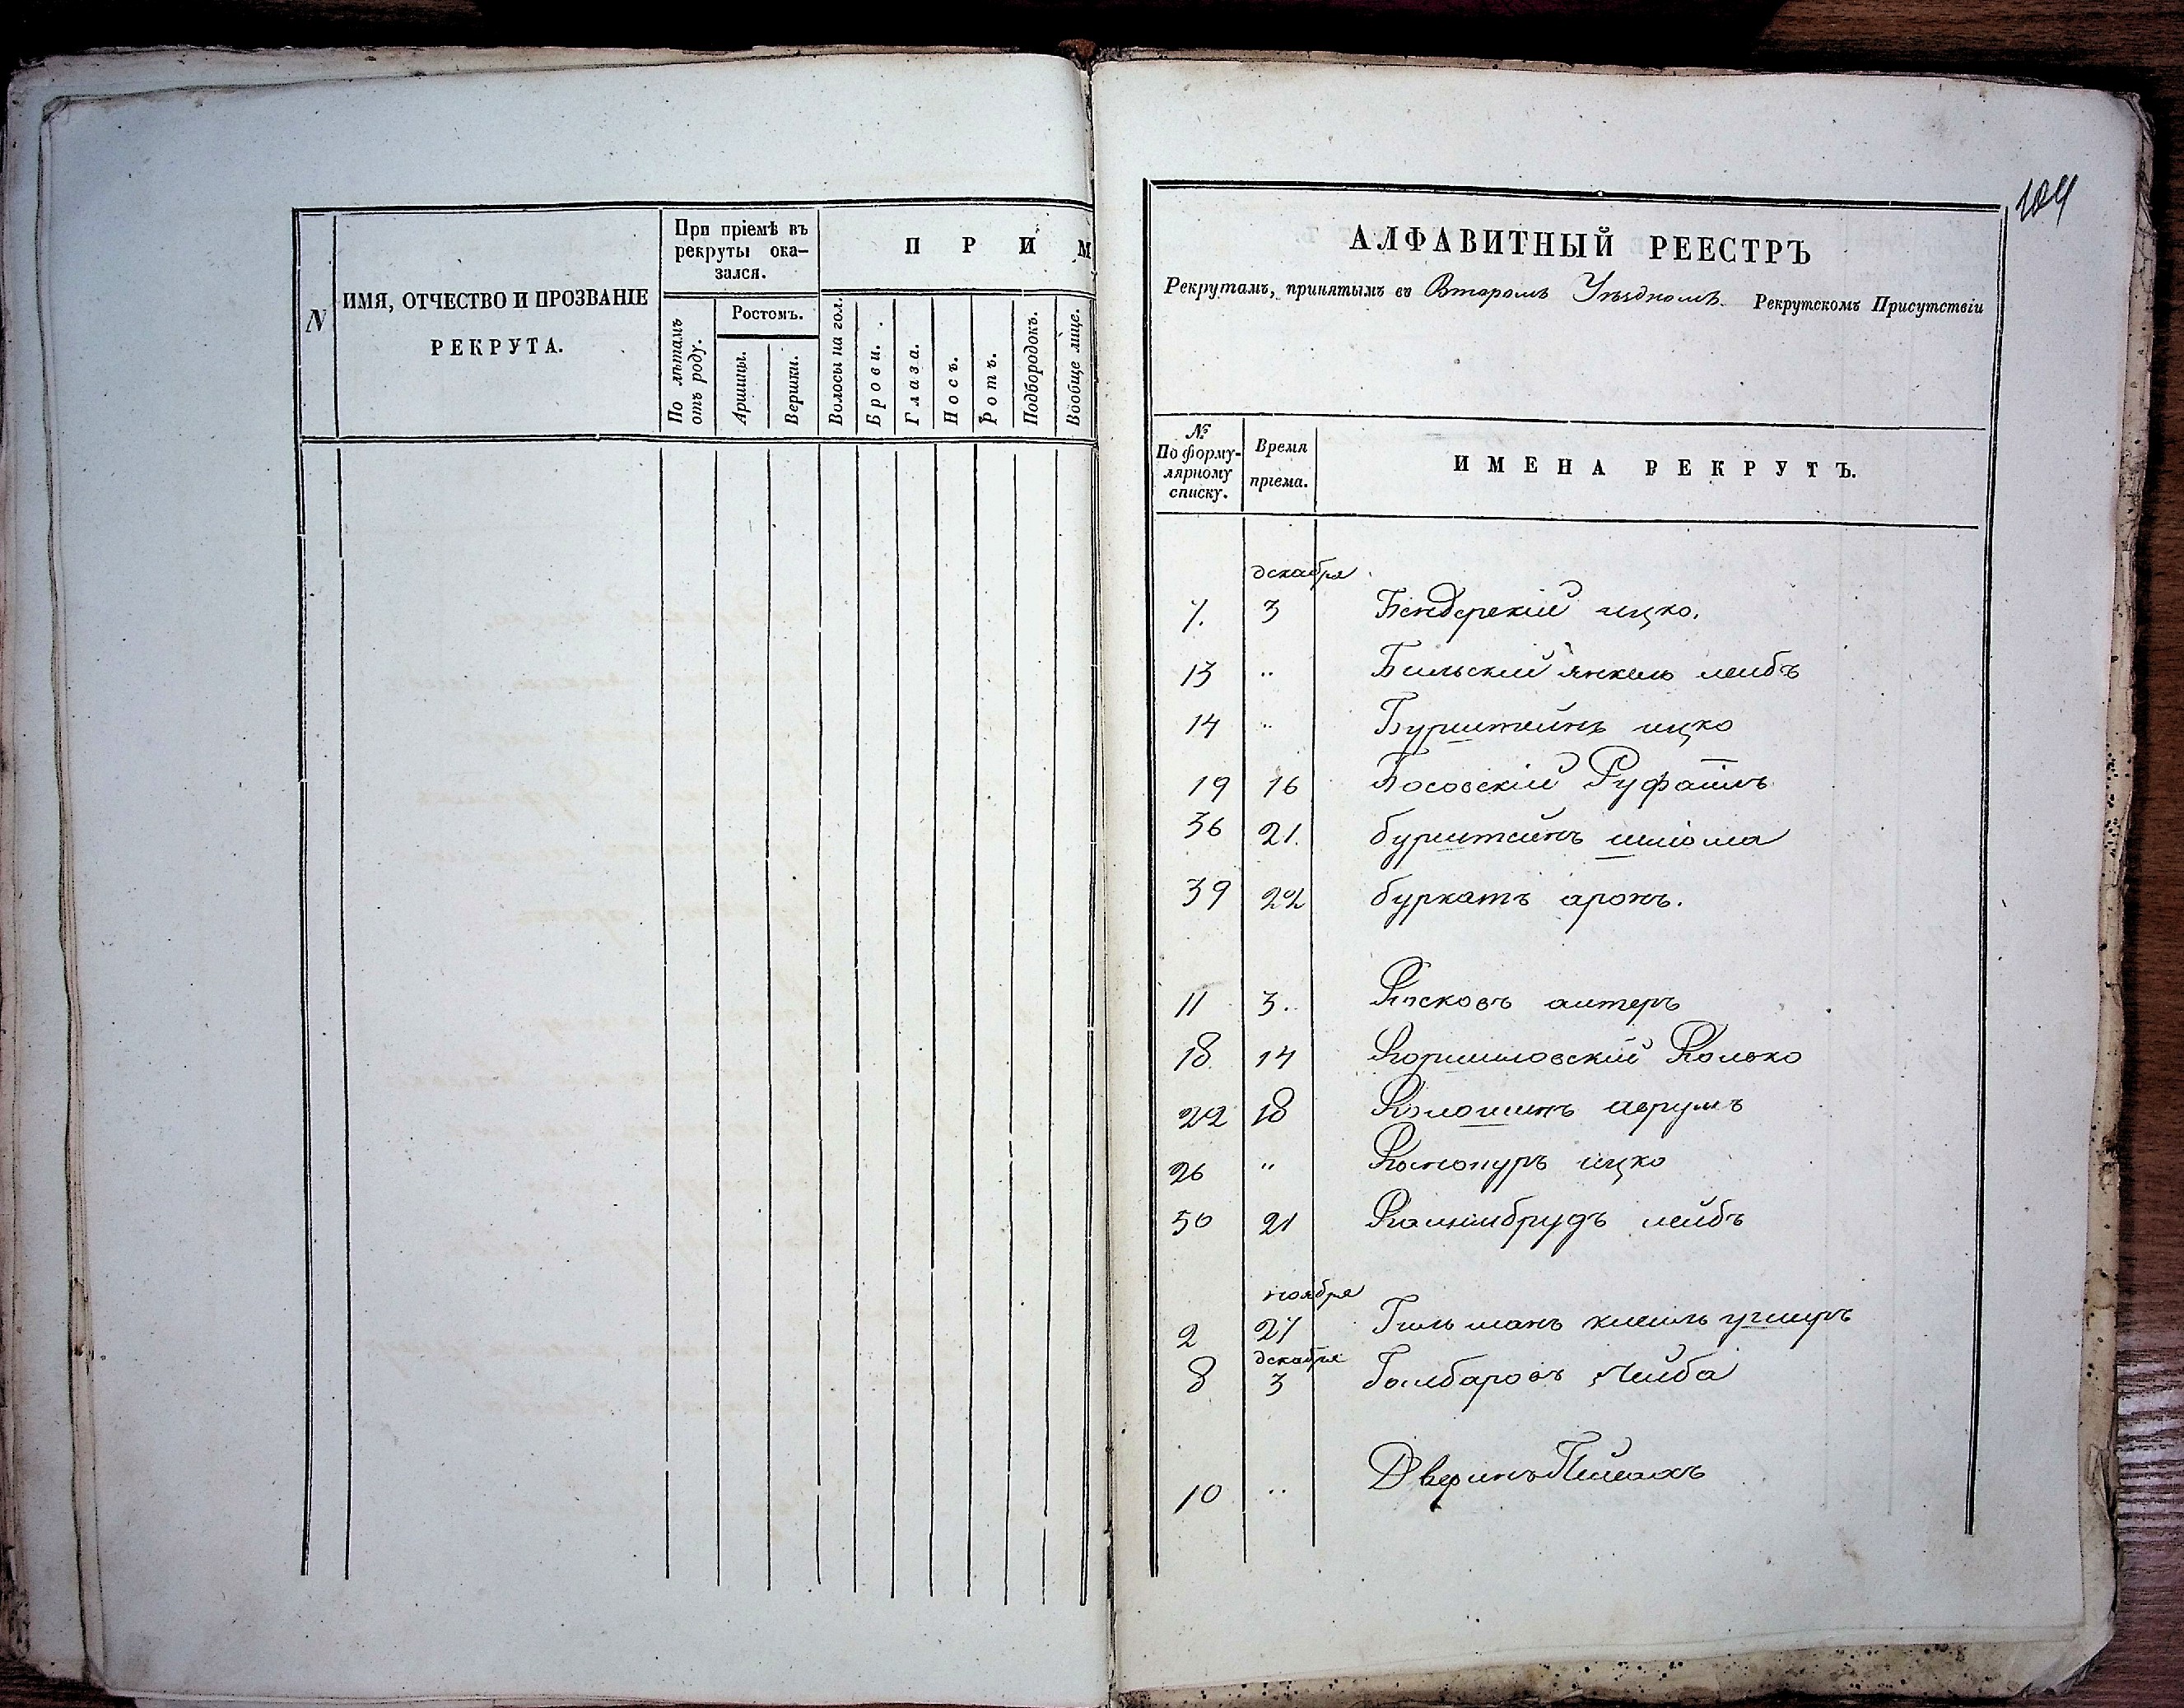 N
ИМЯ, ОТЧЕСТВО И ПРОЗВАНІЕ
РЕКРУТА.
При пріемѣ въ
рекруты ока-
зался.
По лѣтамъ
отъ роду.
Ростомъ.
Аршины.
Вершки.
П Р И М
Волосы на гол.
Брови.
Глаза.
Носъ.
Ротъ.
Подбородокъ.
Вообще лице.
104
АЛФАВИТНЫЙ РЕЕСТРЪ
Рекрутамъ, принятымъ въ Второмъ Уѣздномъ Рекрутскомъ Присутствіи
№
По форму-
лярному
списку.
Время
пріема.
ИМЕНА РЕКРУТЪ.
декабря
7. 3 Бендерскій ицко.
13 " Бильскій янкель лейбъ
14 " Бурштейнъ ицко
19 16 Босовскій Руфаилъ
36 21. бурштейнъ шліома
39 22 буркатъ аронъ.
11 3. алтеръ
18 14
22 18 аврумъ
26 " ицко
50 21 лейбъ
ноября
2 27 Гильманъ
декабря
8 3 Гольбаровъ Лейба
10 " Дверинъ Пейсахъ